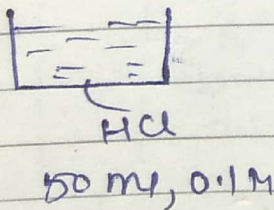 HCl
50 ml, 0.1M